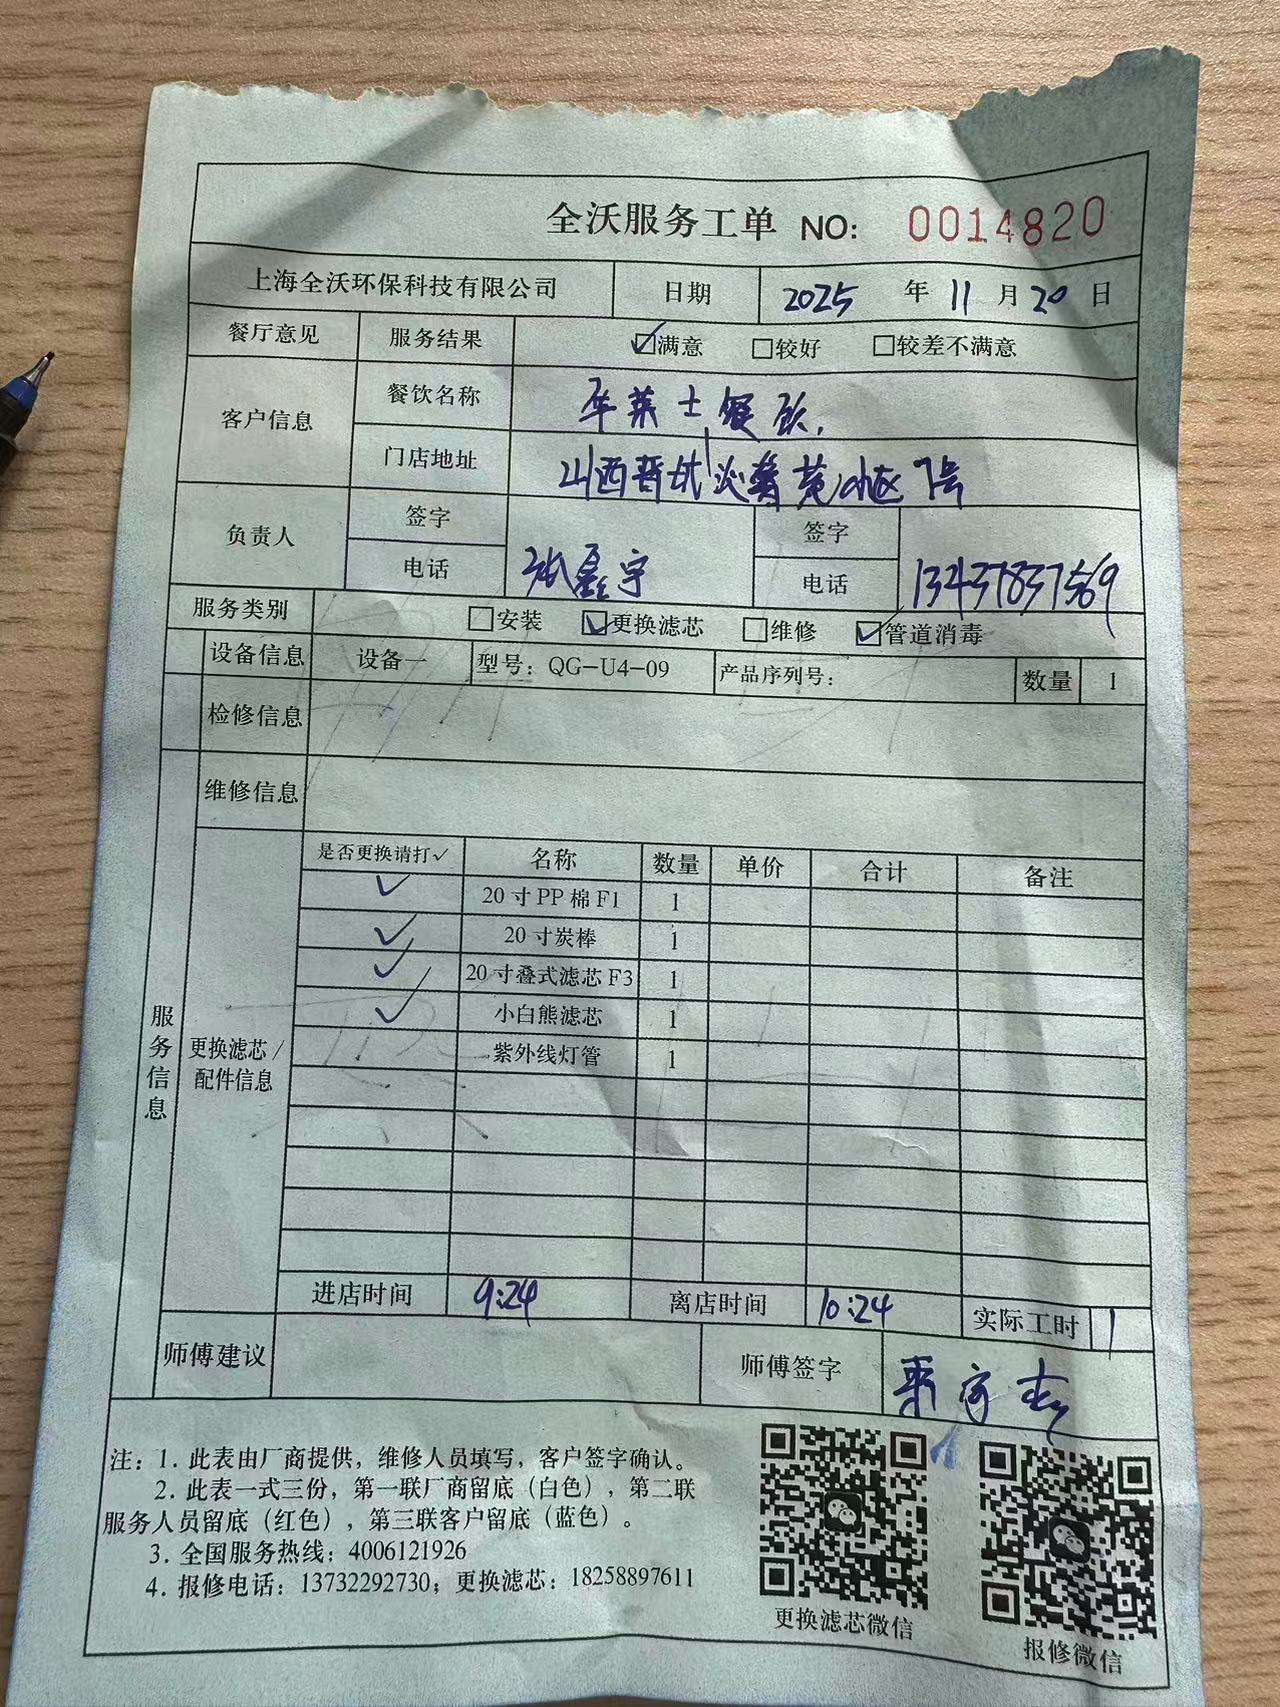 全沃服务工单 NO: 0014820
上海全沃环保科技有限公司 日期 2025 年 11 月 20 日
餐厅意见 服务结果 ☑满意 □较好 □较差不满意
客户信息 餐饮名称 莱士餐饮
门店地址 山西晋城 苑小区
负责人 签字 签字
电话 张鑫宇 电话 13437837569
服务类别 □安装 ☑更换滤芯 □维修 ☑管道消毒
设备信息 设备一 型号：QG-U4-09 产品序列号： 数量 1
检修信息
维修信息
是否更换请打✓ 名称 数量 单价 合计 备注
✓ 20寸PP棉F1 1
✓ 20寸炭棒 1
✓ 20寸叠式滤芯F3 1
✓ 小白熊滤芯 1
紫外线灯管 1
服务信息
更换滤芯/
配件信息
进店时间 9:24 离店时间 10:24 实际工时 1
师傅建议 师傅签字
注：1. 此表由厂商提供，维修人员填写，客户签字确认。
2. 此表一式三份，第一联厂商留底（白色），第二联
服务人员留底（红色），第三联客户留底（蓝色）。
3. 全国服务热线：4006121926
4. 报修电话：13732292730；更换滤芯：18258897611
更换滤芯微信
报修微信